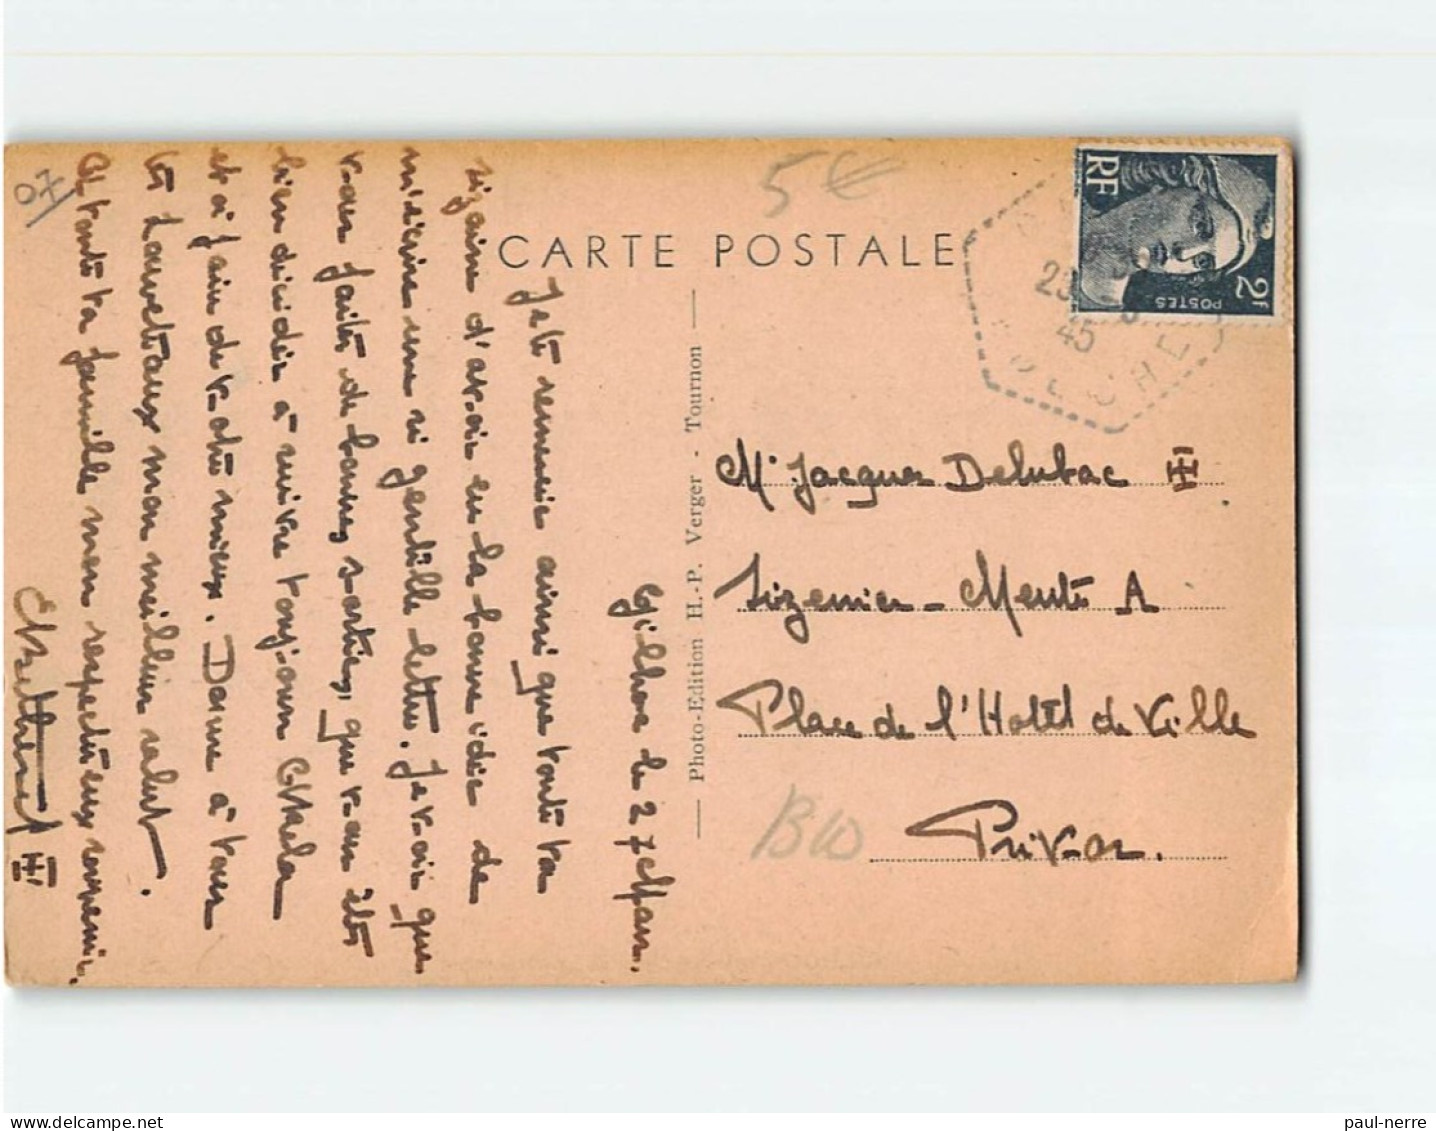 07
5€
CARTE POSTALE
RF
POSTES
2F
23
45
Gilhoc le 27 Mars.
Je te remercie ainsi que toute ta
sizaine d'avoir eu la bonne idée de
m'écrire une si gentille lettre. Je vois que
vous faites de bonnes sorties, que vous êtes
bien décidés à suivre toujours Akela
et à faire de votre mieux. Donne à tous
tes Louveteaux mon meilleur salut.
et toute ta famille mon respectueux souvenir.
Photo-Edition H.-P. Verger - Tournon
Mr Jacques Delubac
Sizenier - Meute A
Place de l'Hôtel de Ville
Privas.
BW
paul-nerre